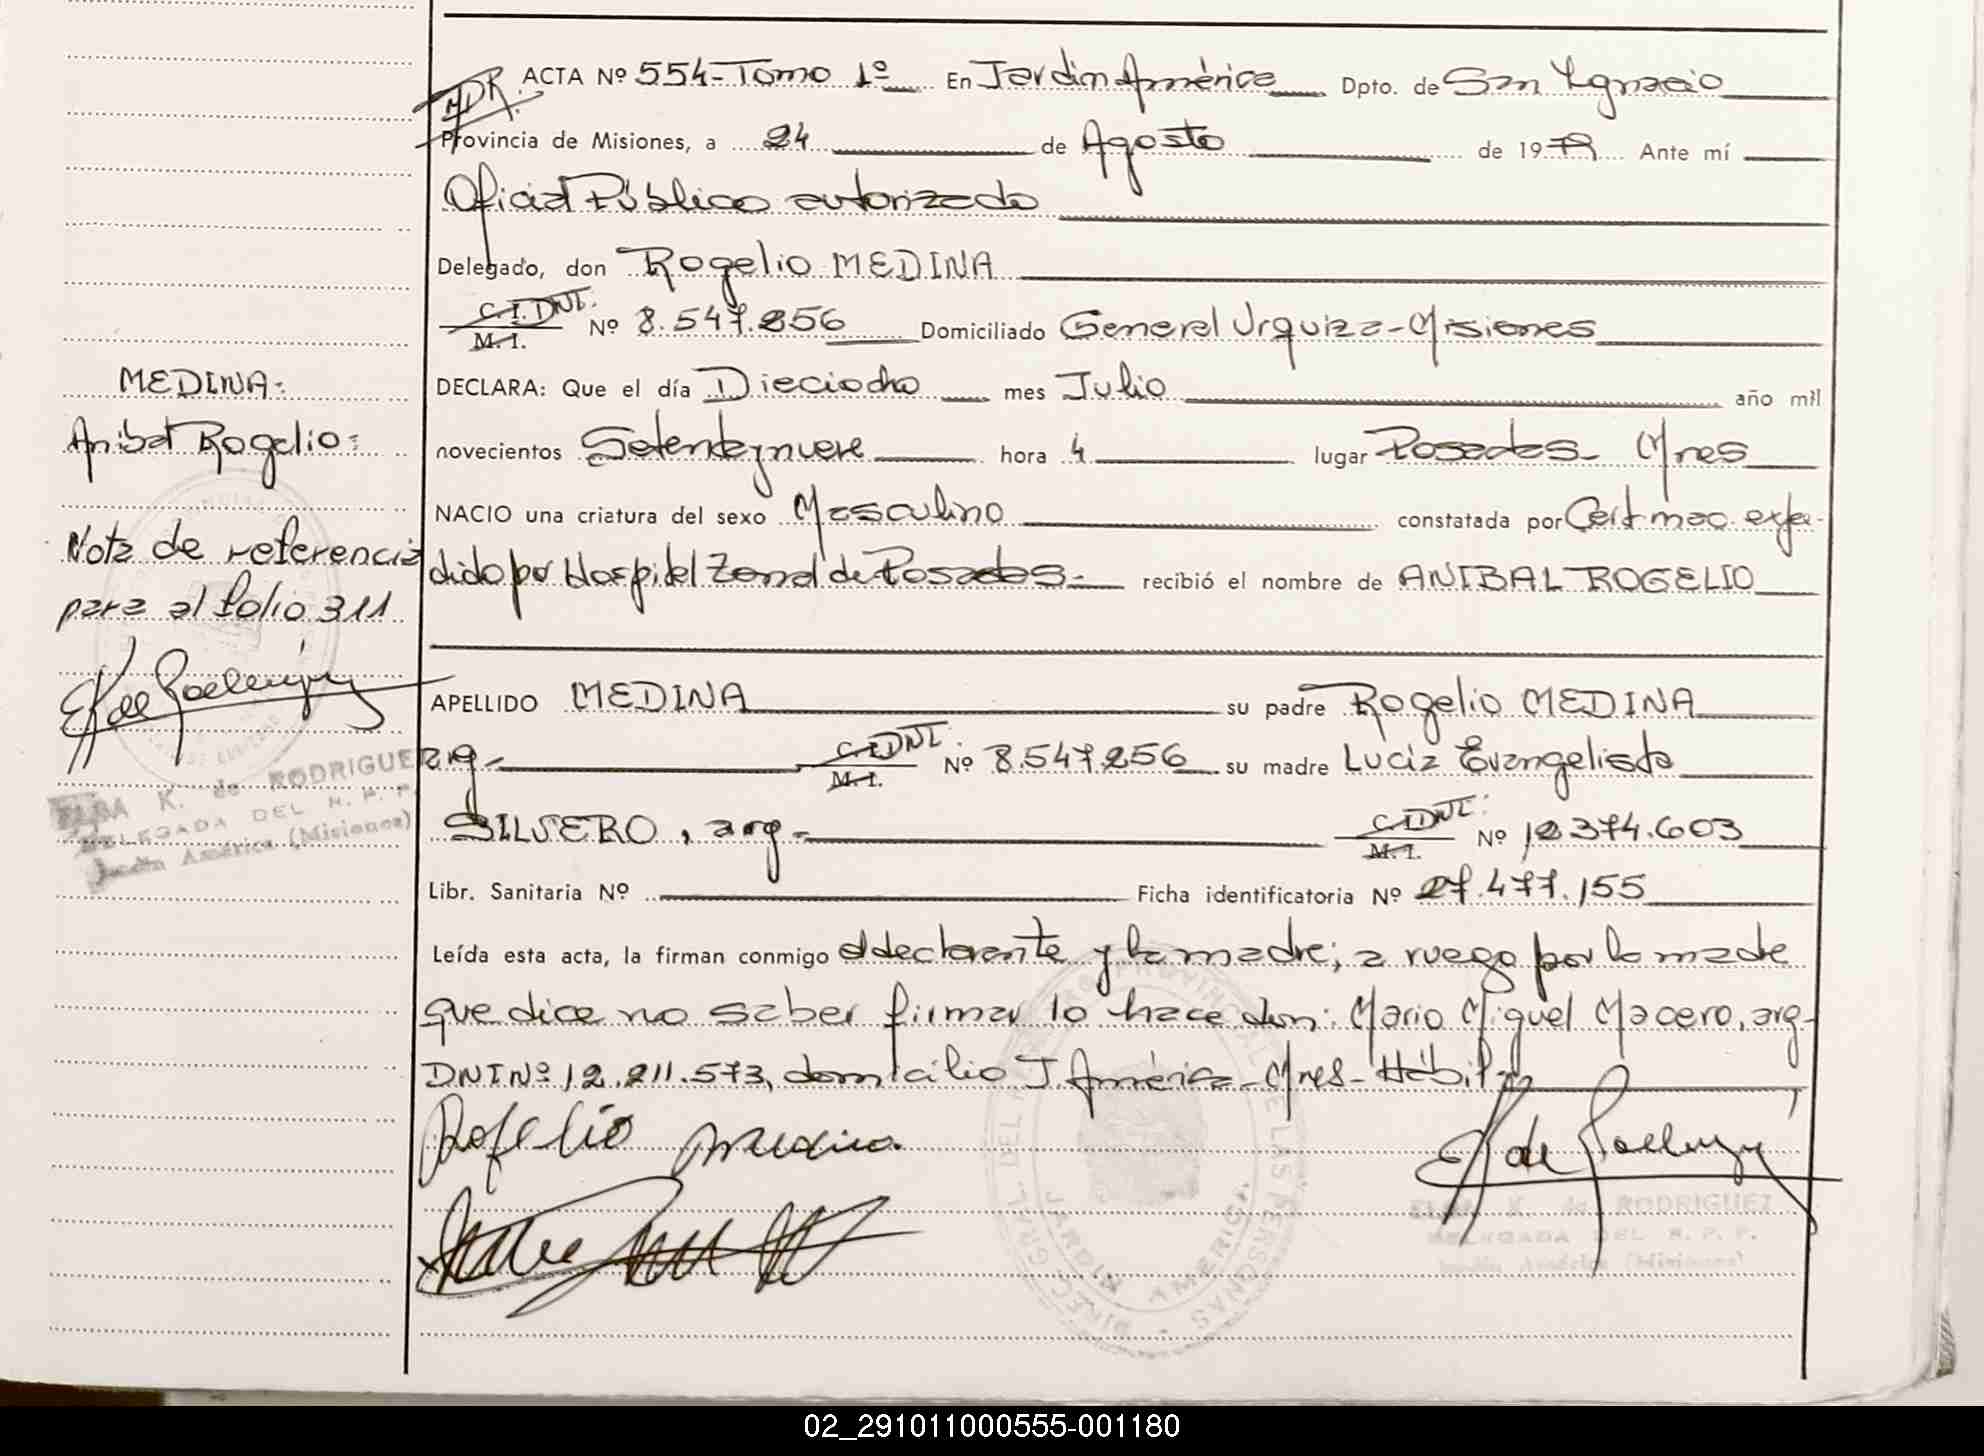 ACTA Nº 554-Tomo 1º En Jardin América Dpto. de San Ygnacio
Provincia de Misiones, a 24 de Agosto de 1979 Ante mí
Oficial Público autorizado
Delegado, don Rogelio MEDINA
C.I. DNI. M.I. Nº 8.547.256 Domiciliado General Urquiza-Misiones
DECLARA: Que el día Dieciocho mes Julio año mil
novecientos Setentaynueve hora 4 lugar Posadas- Mnes
NACIO una criatura del sexo Masculino constatada por Cert mac. expe-
dido por Hospital Zonal de Posadas- recibió el nombre de ANIBAL ROGELIO
APELLIDO MEDINA su padre Rogelio MEDINA
arg- C.I. DNI. M.I. Nº 8.547.256 su madre Lucia Evangelista
SILVERO, arg- C.I. DNI. M.I. Nº 12.374.603
Libr. Sanitaria Nº Ficha identificatoria Nº 27.477.155
Leída esta acta, la firman conmigo el declarante y la madre; a ruego por la madre
que dice no saber firmar lo hace don: Mario Miguel Macero, arg-
DNI Nº 12.211.573, domicilio J. América-Mnes-Hábil-
Rogelio Medina
ELBA K. de RODRIGUEZ
DELEGADA DEL R. P. P.
Jardín América (Misiones)
JARDIN AMERICA
MEDINA:
Anibal Rogelio:
Nota de referencia
para al folio 311
ELBA K. de RODRIGUEZ
DELEGADA DEL R. P. P.
Jardín América (Misiones)
02_291011000555-001180